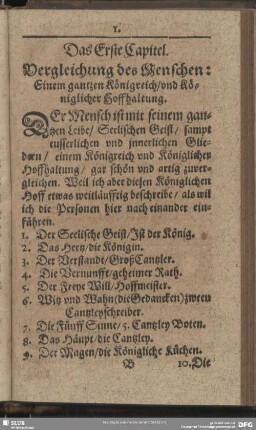 1.
Das Erste Capitel.
Vergleichung des Menschen:
Einem gantzen Königreich/und Kö-
niglicher Hoffhaltung.
DEr Mensch ist mit seinem gan-
tzen Leibe/ Seelischen Geist/ sampt
eusserlichen und innerlichen Glie-
dern/ einem Königreich und Königlicher
Hoffhaltung/ gar schön und artig zuver-
gleichen. Weil ich aber diesen Königlichen
Hoff etwas weitläufftig beschreibe/ als wil
ich die Personen hier nach einander ein-
führen.
1. Der Seelische Geist/Ist der König.
2. Das Hertz/die Königin.
3. Der Verstandt/GroßCantzler.
4. Die Vernunfft/geheimer Rath.
5. Der Freye Will/Hoffmeister.
6. Witz und Wahn(dieGedancken)zween
Cantzleyschreiber.
7. Die Fünff Sinne/5. Cantzley Boten.
8. Das Häupt/die Cantzley.
9. Der Magen/die Königliche Küchen.
B 10. Die
SLUB
DFG